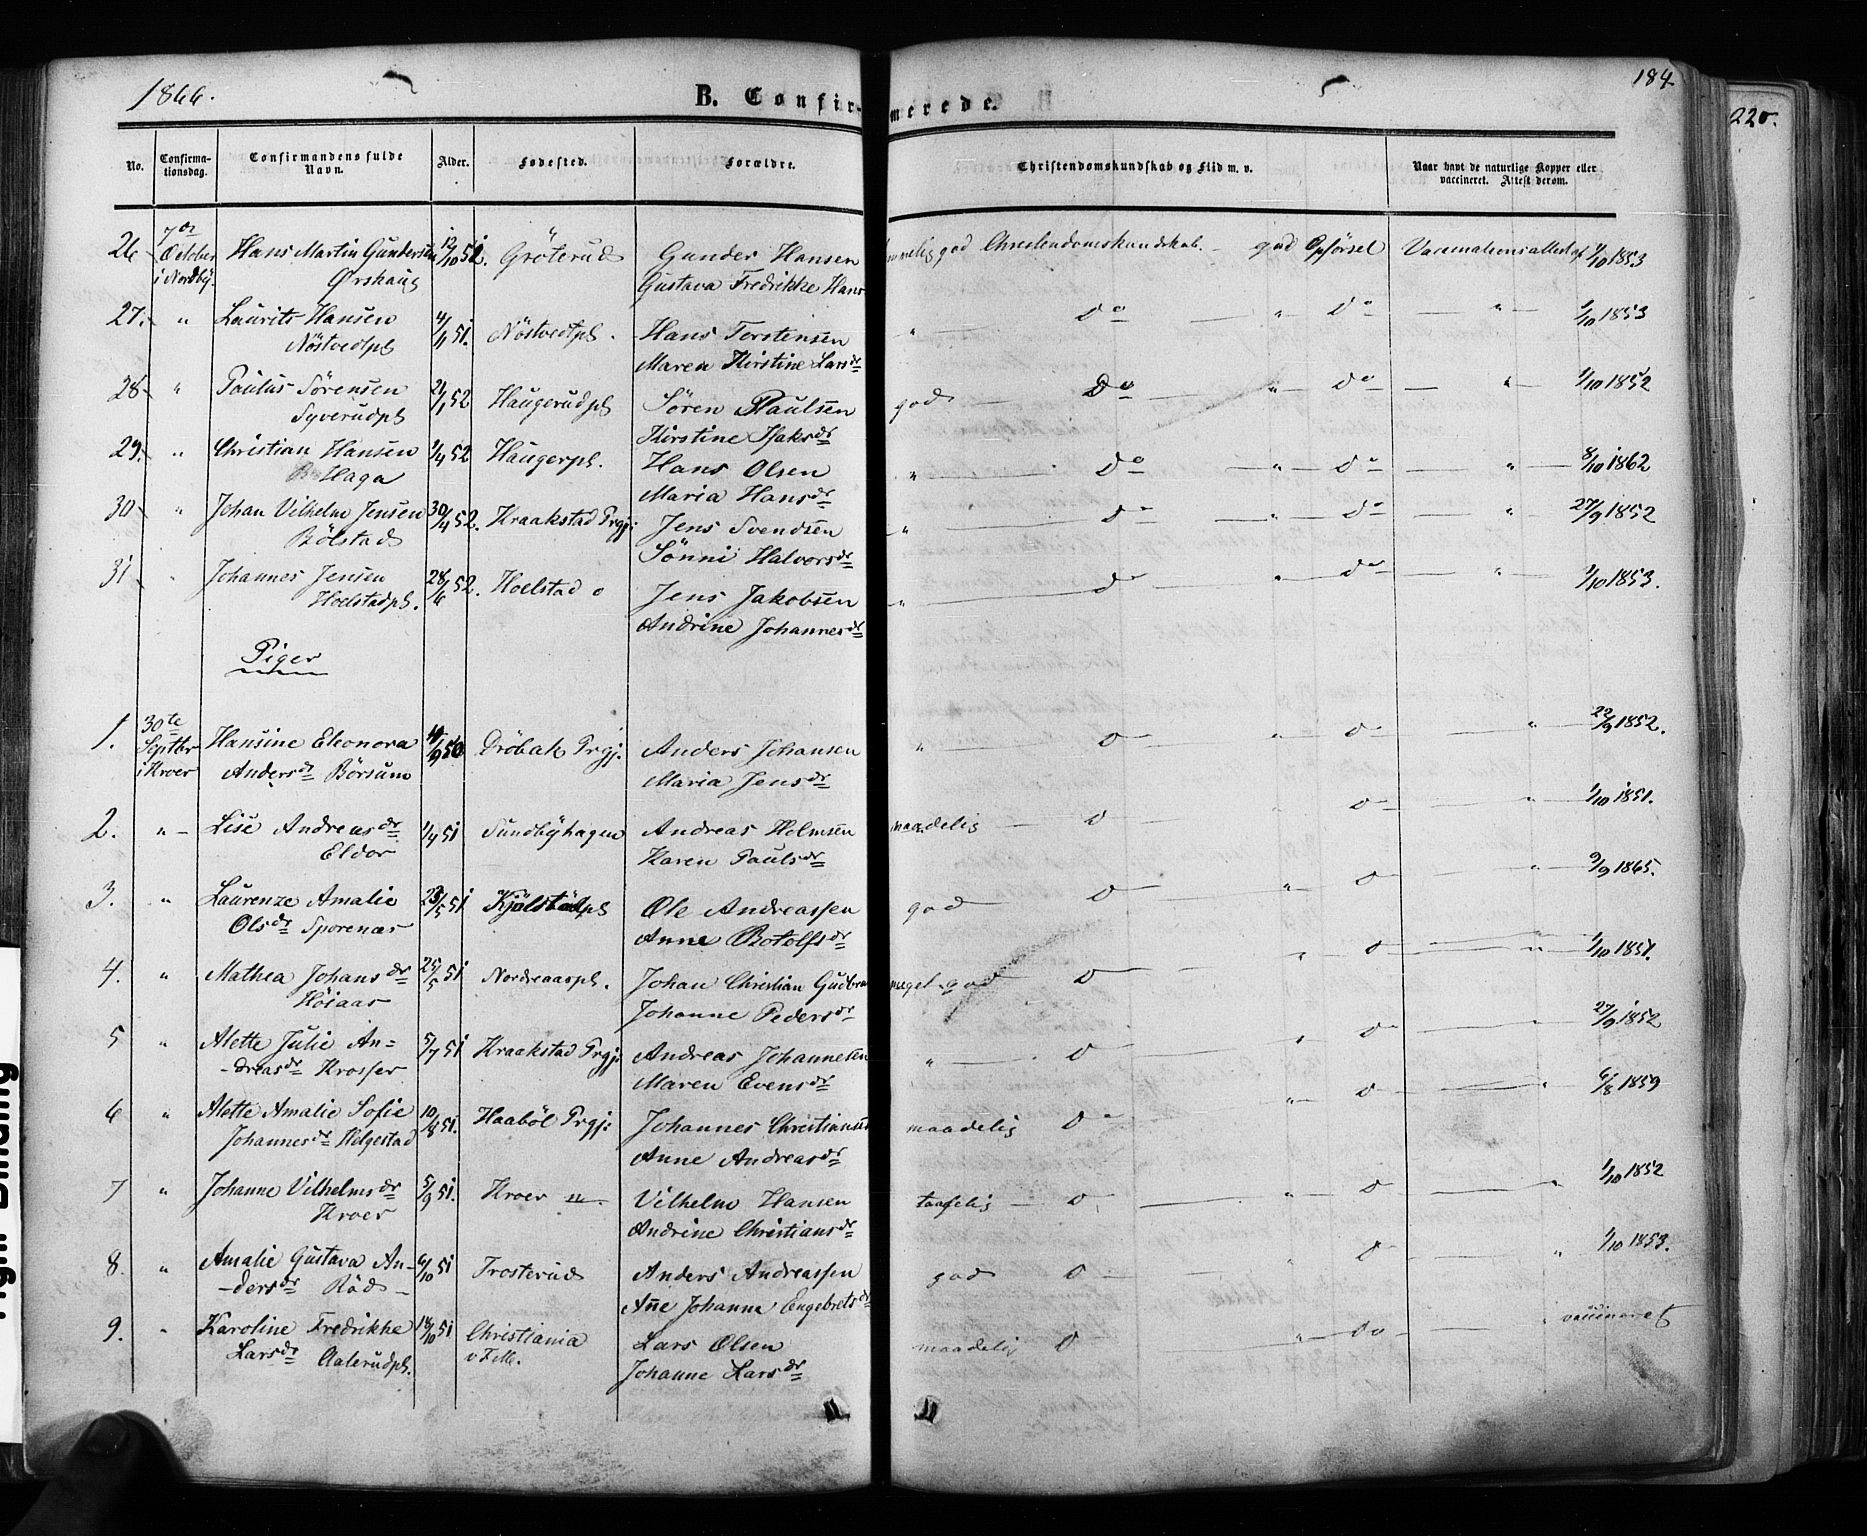 1866.
B. Confirmerede.
184
220.
No. Confirmationsdag. Confirmandens fulde Navn. Alder. Fødested. Forældre. Christendomskundskab og Flid m. v. Naar havt de naturlige Kopper eller vaccineret. Attest derom.
26 7de October i Nordby. Hans Martin Gundersen Ørshaug 12/10 51. Gröterud Gunder Hansen Gustava Fredrikke Hans god Christendomskundskab. god Opførsel Vaccinationsattest af 1/10 1853
27. " Laurits Hansen Nöstvedtpl 4/1 51. Nöstvedtpl. Hans Torstensen Maren Kirstine Larsdr " Do " Do " 1/10 1853
28 " Paulus Sörensen Syverudpl 21/1 52 Haugerudpl Sören Paulsen Kirstine Isaksdr god Do " Do " 1/10 1852
29. " Christian Hansen Haga 1/4 52 Haugerpl. Hans Olsen Maria Hansdr " Do " Do " 8/10 1862
30 " Johan Vilhelm Jensen Bölstad 30/4 52. Kraakstad Prgj: Jens Svendsen Sönni Halvorsdr " Do " Do " 27/9 1852
31 " Johannes Jensen Hoelstadpl. 28/6 52. Hoelstad o Jens Jakobsen Andrine Johannesdr " Do " Do " 1/10 1853.
Piger
1. 30te Septbr i Kroer Hansine Eleonora Andersdr Börsum 4/9 50 Dröbak Prgj. Anders Johansen Maria Jensdr " D " D " 22/9 1852.
2. " Lise Andreasdr Eldor 1/4 51 Sundbyhagen Andreas Holmsen Karen Paulsdr maadelig D " D " 1/10 1851.
3. " Laurenze Amalie Olsdr Sporenæs 23/5 51 Kjölstadpl Ole Andreassen Anne Botolfsdr god D " D " 9/9 1865.
4. " Mathea Johansdr Höiaas 25/5 51 Nordreaaspl. Johan Christian Gudbran Johanne Pedersdr meget god D " D " 1/10 1851.
5 " Alette Julie Andreasdr Krosser 5/7 51 Kraakstad Prgj: Andreas Johannesen Maren Evensdr " D " D " 27/9 1852
6 " Alette Amalie Sofie Johannesdr Helgestad 10/8 51. Haaböl Prgj: Johannes Christiansen Anne Andreasdr maadelig D " D " 6/8 1859
7 " Johanne Vilhelmsdr Kroer 5/9 51. Kroer " Vilhelm Hansen Andrine Christiansdr taalelig D " D " 1/10 1852
8. " Amalie Gustava Andersdr Röd 6/10 51 Trosterud Anders Andreassen Ane Johanne Engebretsdr god D " D " 1/10 1853.
9. " Karoline Fredrikke Larsdr Aalerudpl. 18/10 51 Christiania Lars Olsen Johanne Larsdr maadelig D " Do " vaccineret